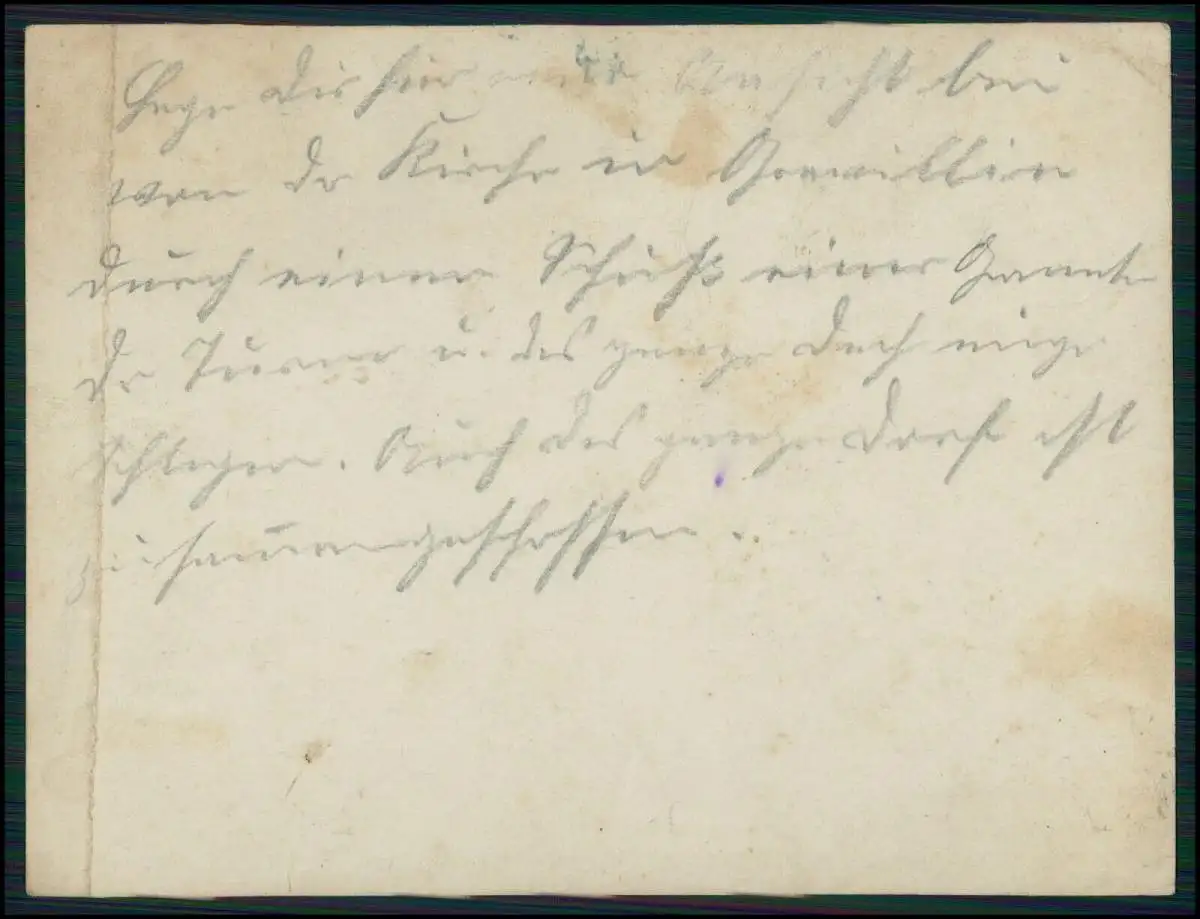 Lege dir hier eine Ansicht bei
von der Kirche in
durch einen Schuß einer Granate
der Turm u. das ganze Dach einge
schlagen. Auch das ganze Dorf ist
zusammengeschossen.